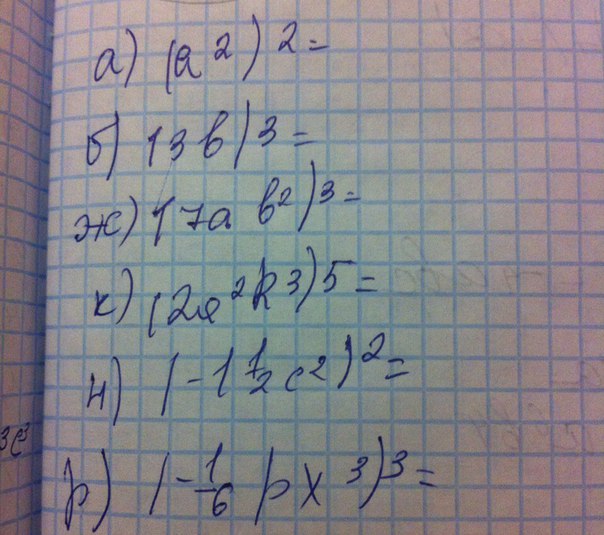 а) (a²)²=
б) (3b)³=
ж) (7a b²)³=
к) (2a²k³)5=
н) (-1 1/2 c²)²=
р) (-1/6 p x³)³=
3c³